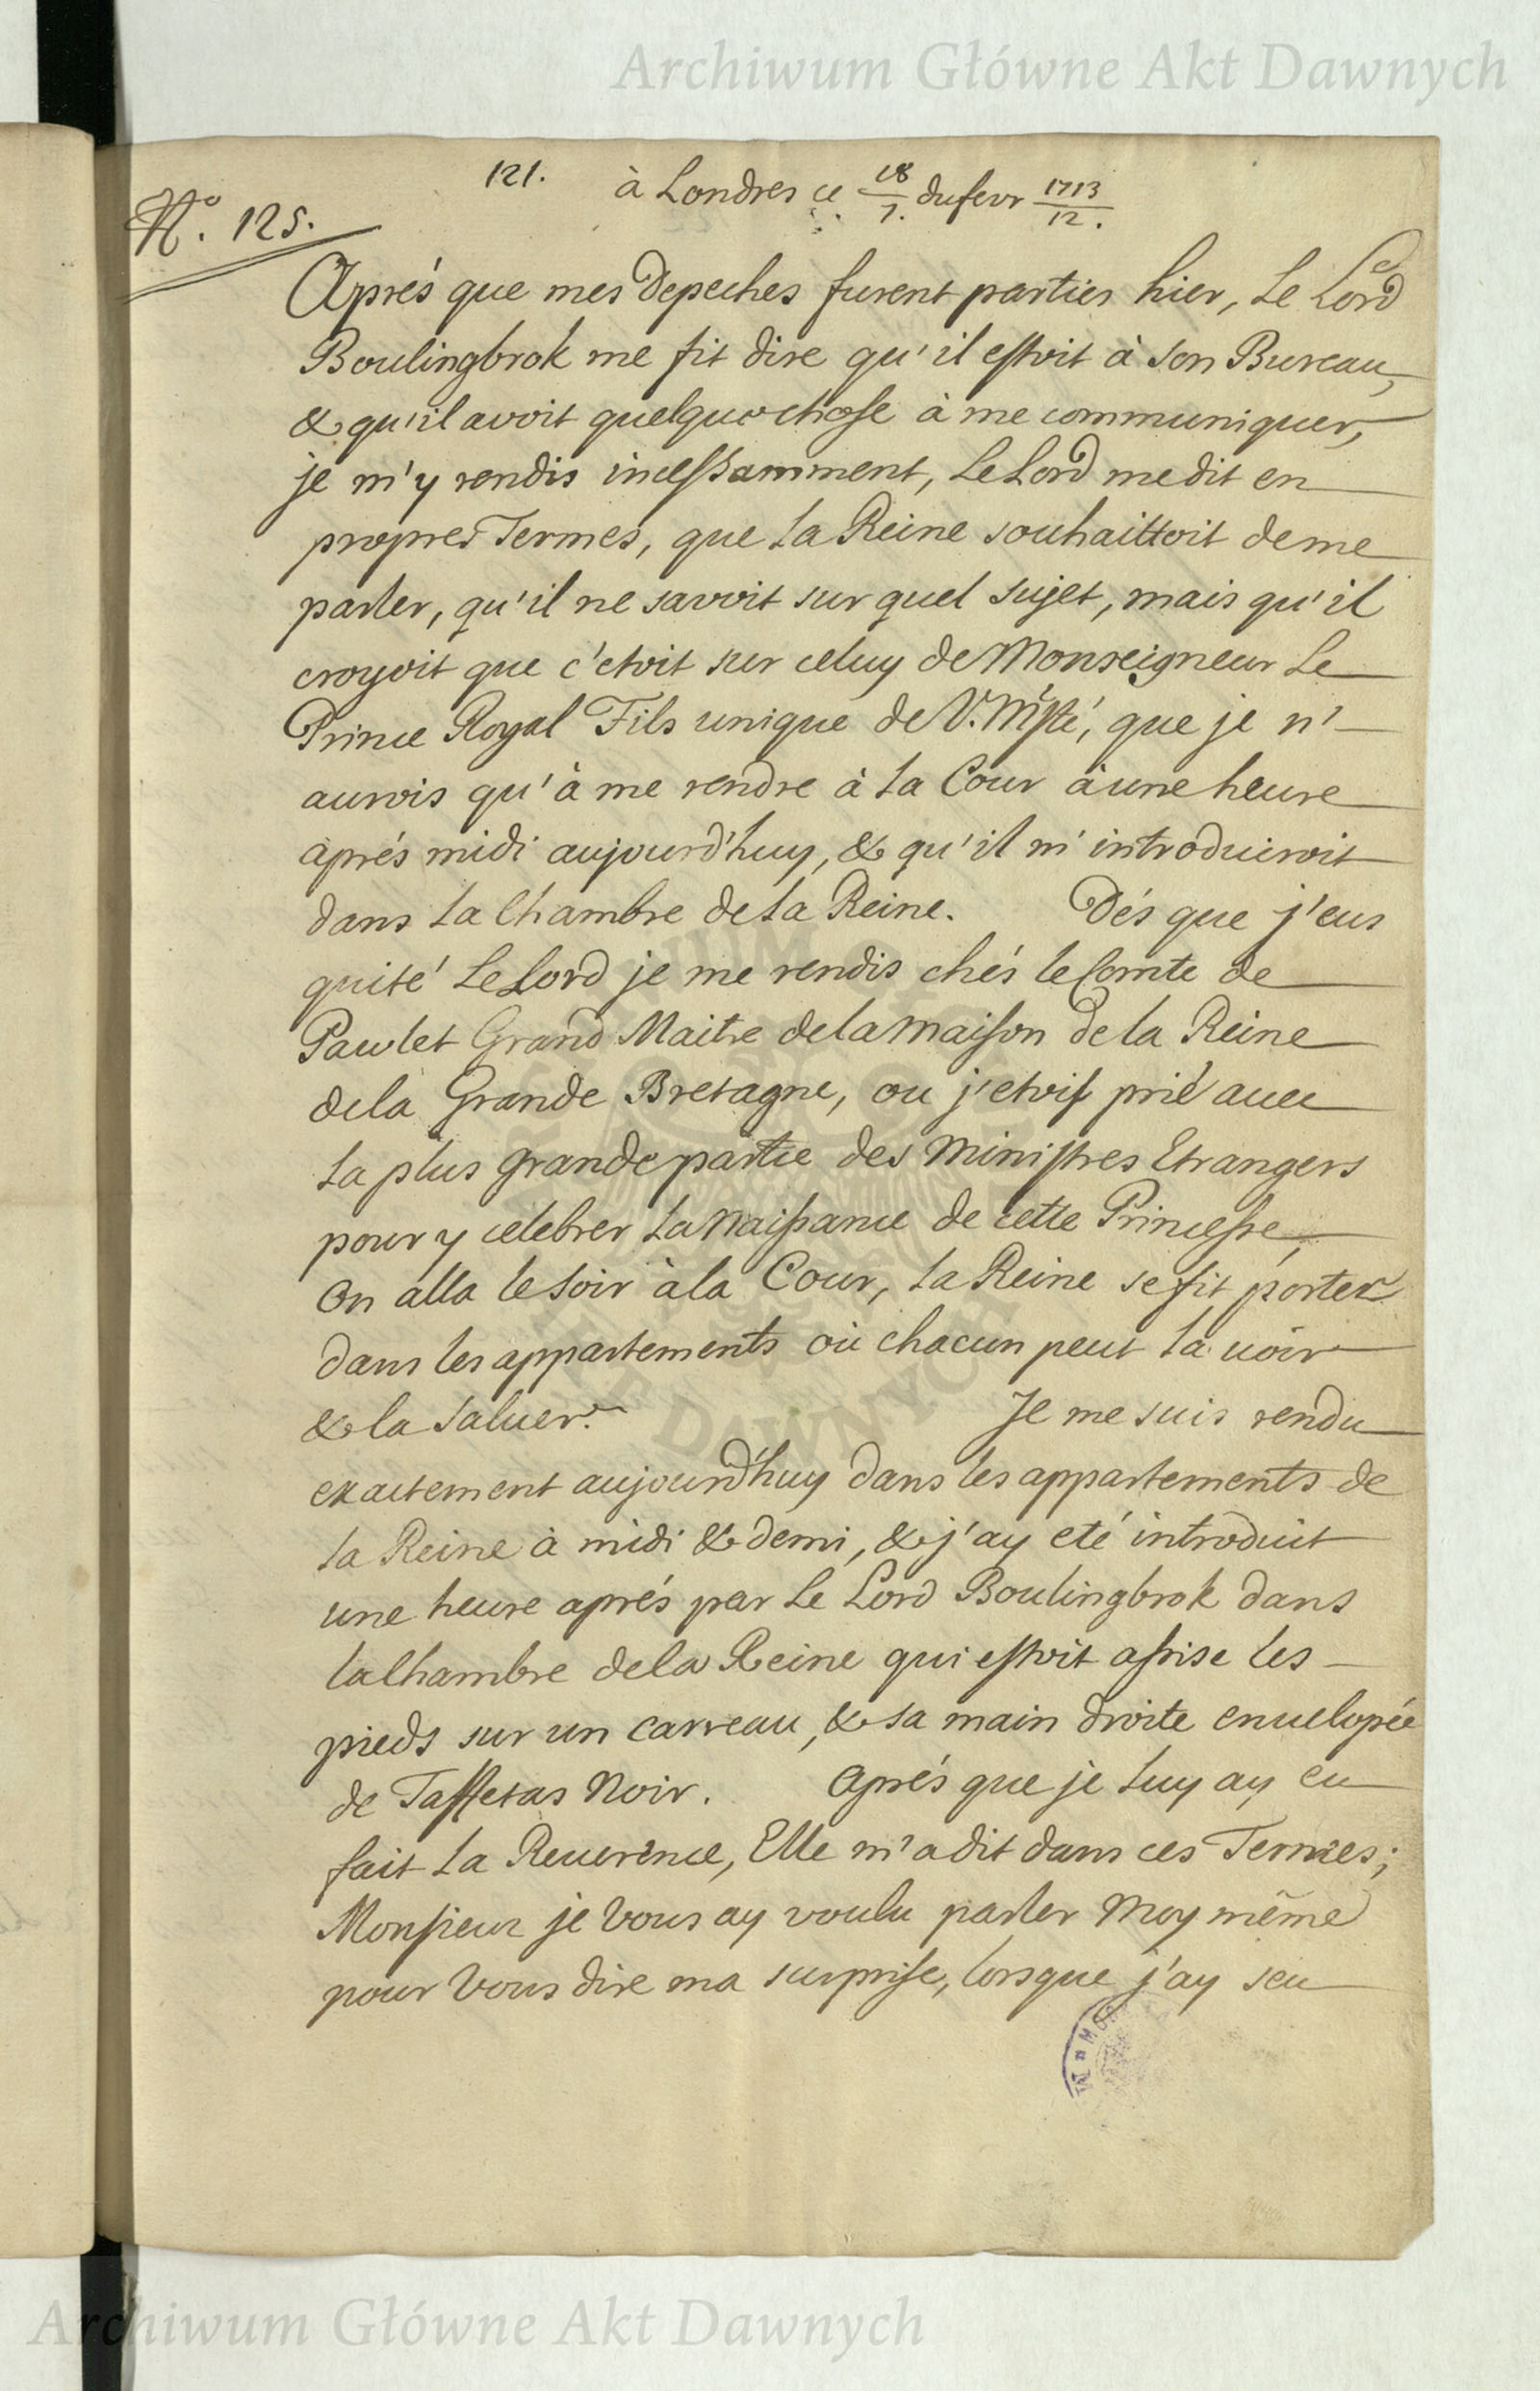 Archiwum Główne Akt Dawnych
121. à Londres ce 18/7. du fevr 1713/12.
No. 125.
Aprés que mes Depeches furent parties hier, Le Lord
Boulingbrok me fit dire qu'il estoit à son Bureau,
& qu'il avoit quelque chose à me communiquer,
je m'y rendis incessamment, Le Lord me dit en
propres Termes, que La Reine souhaittoit de me
parler, qu'il ne savoit sur quel sujet, mais qu'il
croyoit que c'etoit sur celuy de Monseigneur Le
Prince Royal Fils unique de V. Mste, que je n'
aurois qu'à me rendre à La Cour à une heure
aprés midi aujourd'huy, & qu'il m'introduiroit
dans La Chambre de La Reine. Dés que j'eus
quité Le Lord je me rendis chés le Comte de
Pawlet Grand Maitre de la Maison de la Reine
de la Grande Bretagne, ou j'etois prié avec
La plus grande partie des Ministres Etrangers
pour y celebrer La Naissance de cette Princesse,
On alla le soir à la Cour, La Reine se fit porter
dans les appartements où chacun peut La voir
& la Saluer. Je me suis rendu
exactement aujourd'huy dans les appartements de
La Reine à midi & demi, & j'ay eté introduit
une heure aprés par Le Lord Boulingbrok dans
la Chambre de la Reine qui estoit assise les
pieds sur un carreau, & sa main droite envelopée
de Taffetas Noir. Aprés que je Luy ay eu
fait La Reverence, Elle m'a dit dans ces Termes;
Monsieur je Vous ay voulu parler Moy même
pour Vous dire ma surprise, lorsque j'ay seu
Archiwum Główne Akt Dawnych